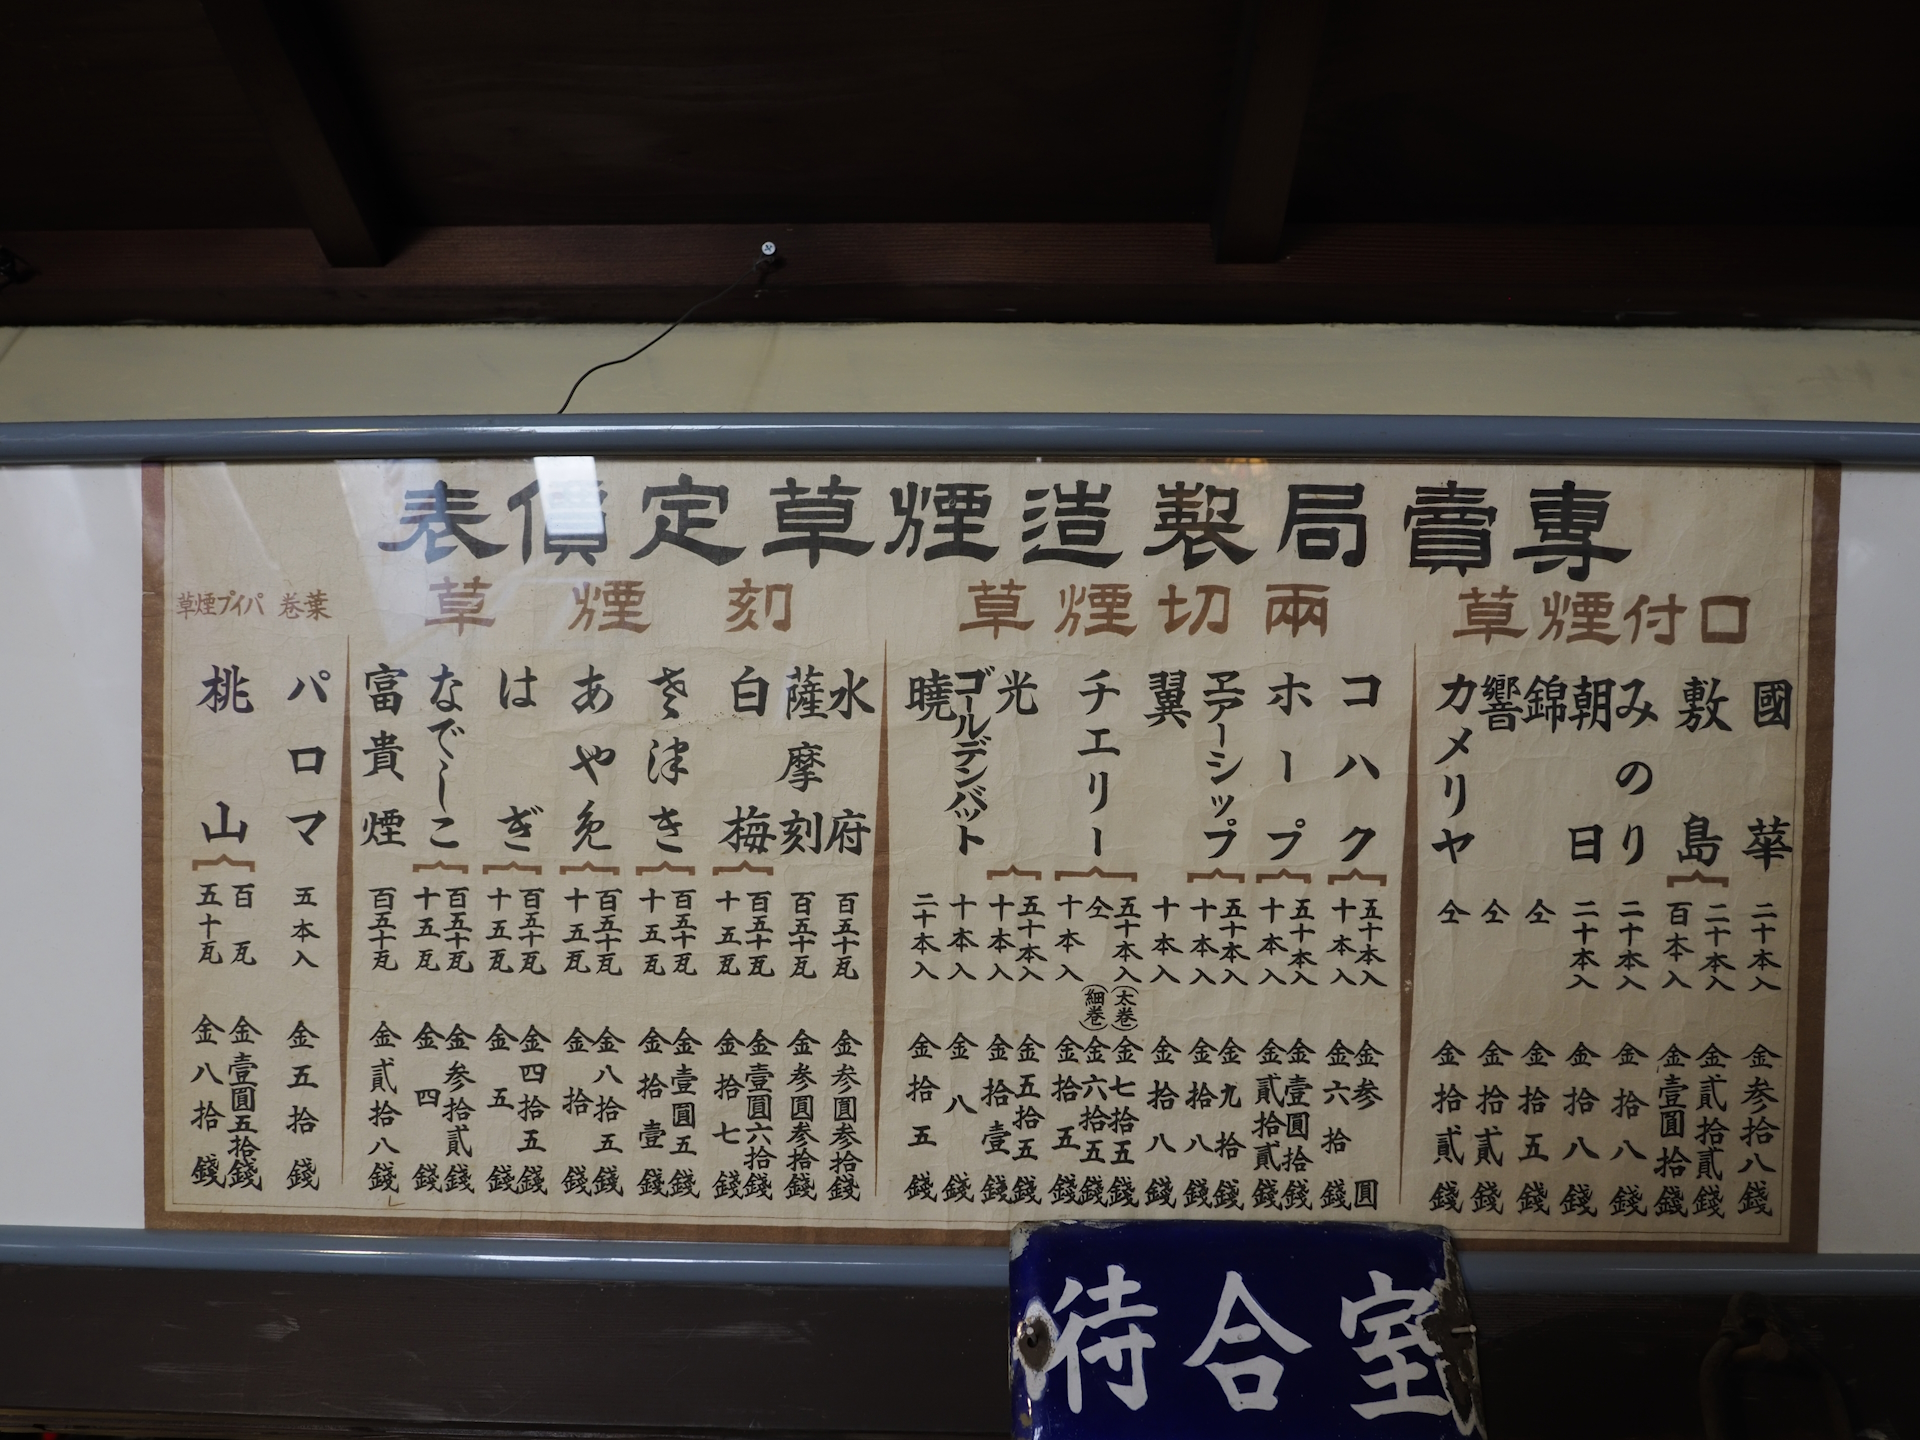 專賣局製造煙草定價表
口付煙草
國華 二十本入 金参拾八錢
敷島 二十本入 金貳拾貳錢
百本入 金壹圓拾錢
みのり 二十本入 金拾八錢
朝日 二十本入 金拾八錢
錦 仝 金拾五錢
響 仝 金拾貳錢
カメリヤ 仝 金拾貳錢
兩切煙草
コハク 五十本入 金参圓
十本入 金六拾錢
ホープ 五十本入 金壹圓拾錢
十本入 金貳拾貳錢
エアーシップ 五十本入 金九拾錢
十本入 金拾八錢
翼 十本入 金拾八錢
チエリー 五十本入(太巻) 金七拾五錢
仝(細巻) 金六拾五錢
十本入 金拾五錢
光 五十本入 金五拾五錢
十本入 金拾壹錢
ゴールデンバット 十本入 金八錢
曉 二十本入 金拾五錢
刻煙草
水府 百五十瓦 金参圓参拾錢
薩摩刻 百五十瓦 金参圓参拾錢
白梅 百五十瓦 金壹圓六拾錢
十五瓦 金拾七錢
さつき 百五十瓦 金壹圓五錢
十五瓦 金拾壹錢
あやめ 百五十瓦 金八拾五錢
十五瓦 金拾錢
はぎ 百五十瓦 金四拾五錢
十五瓦 金五錢
なでしこ 百五十瓦 金参拾貳錢
十五瓦 金四錢
富貴煙 百五十瓦 金貳拾八錢
葉巻
パロマ 五本入 金五拾錢
パイプ煙草
桃山 百瓦 金壹圓五拾錢
五十瓦 金八拾錢
待合室